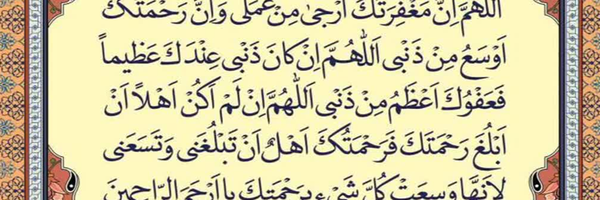 اَللّٰهُمَّ اِنَّ مَغْفِرَتَكَ اَرْجىٰ مِنْ عَمَلى وَاِنَّ رَحْمَتَكَ
اَوْسَعُ مِنْ ذَنْبى اَللّٰهُمَّ اِنْ كانَ ذَنْبى عِنْدَكَ عَظيماً
فَعَفْوُكَ اَعْظَمُ مِنْ ذَنْبى اَللّٰهُمَّ اِنْ لَمْ اَكُنْ اَهْلاً اَنْ
اَبْلُغَ رَحْمَتَكَ فَرَحْمَتُكَ اَهْلٌ اَنْ تَبْلُغَنى وَتَسَعَنى
لِاَنَّها وَسِعَتْ كُلَّ شَىْءٍ بِرَحْمَتِكَ يا اَرْحَمَ الرّاحِمينَ